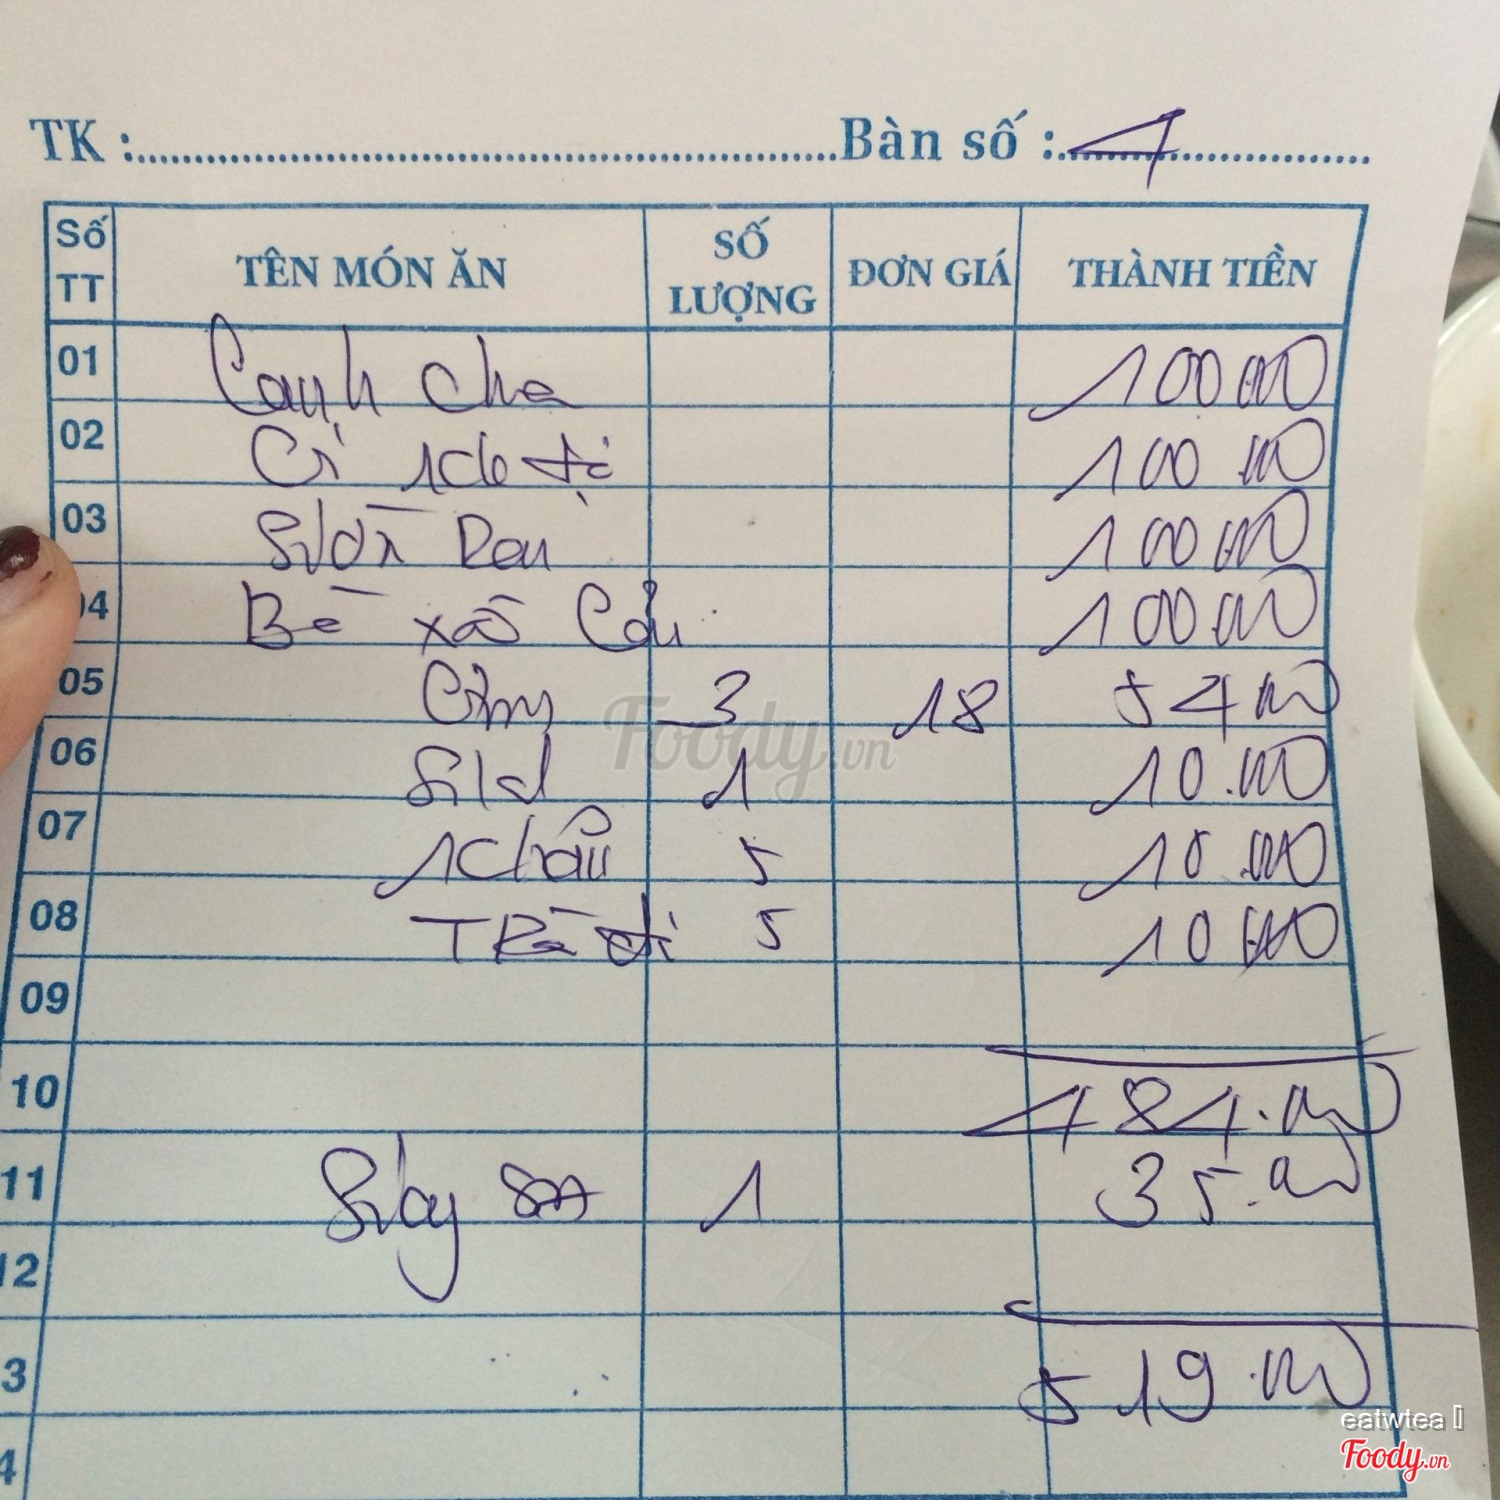 TK : Bàn số : 4
Số TT TÊN MÓN ĂN SỐ LƯỢNG ĐƠN GIÁ THÀNH TIỀN
01 Canh cha 100000
02 Cá kho tộ 100 000
03 Sườn Ram 100 000
04 Bò xào 100 000
05 Cơm 3 18 54 000
06 1 10.000
07 5 10.000
08 Trà đá 5 10 000
09
10 484.000
11 1 35.000
12
3 519.000
4
Foody.vn
eatwtea
Foody.vn